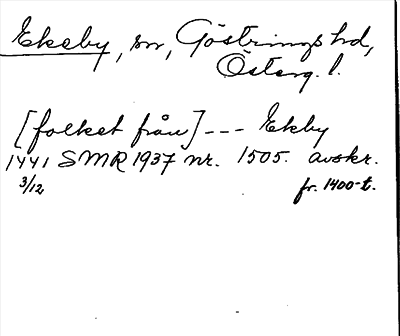 Ekeby, sn, Göstrings hd,
Österg. l.
[folket från] --- Ekby
1441 SMR 1937 nr. 1505. avskr.
3/12 fr. 1400-t.